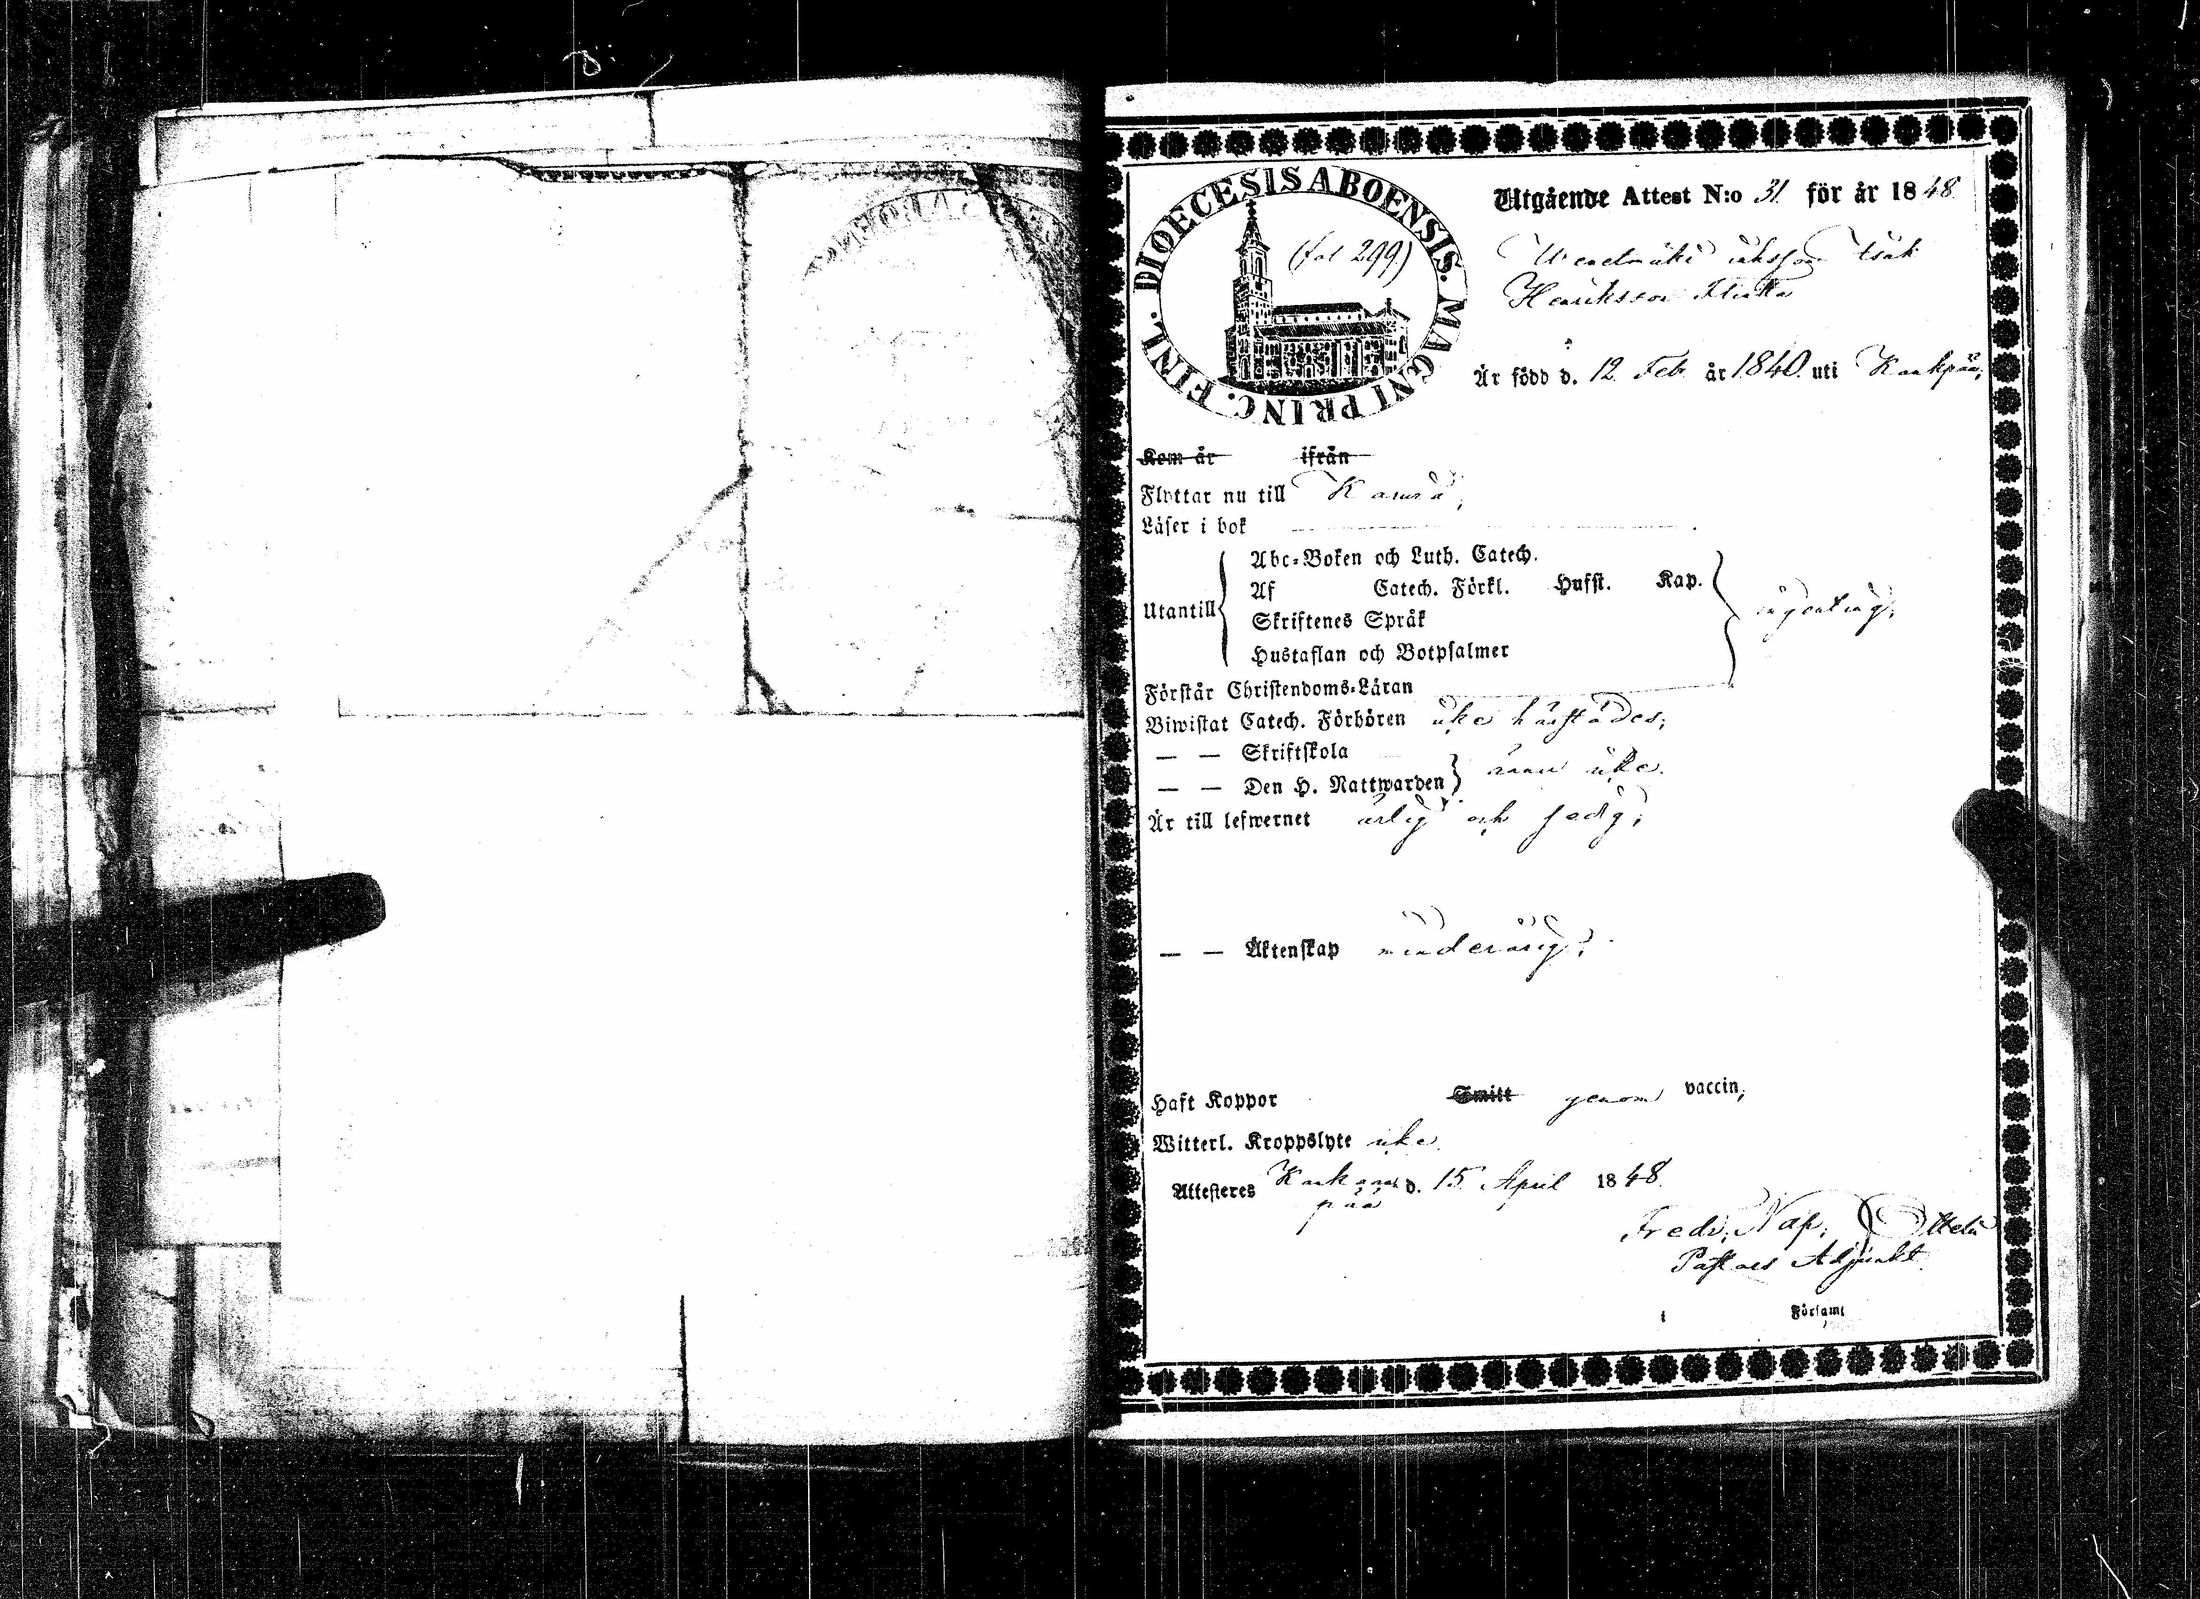 DIOECESIS ABOENSIS. MAGNI PRINC. FINL.
(fol 299)
Utgående Attest N:o 31 för år 1848
Isak
Henriksson
Är född d. 12 Feb år 1840 uti Kankpää,
Kom år ifrån
Flyttar nu till
Läser i bok
Utantill
Abc-Boken och Luth. Catech.
Af Catech. Förkl. Husst. Kap.
Skriftenes Språk
Hustaflan och Botpsalmer
ingenting,
Förstår Christendoms-Läran
Biwistat Catech. Förhören icke härstädes;
— — Skriftskola
— — Den H. Nattwarden
ännu icke.
Är till lefwernet ärlig och sedig;
— — Äktenskap minderårig;
Haft Koppor Smitt genom vaccin;
Witterl. Kroppslyte icke
Attesteres Kankaan d. 15 April 1848
pää
Fredr. Nap.
Pastors Adjunkt
i Församl